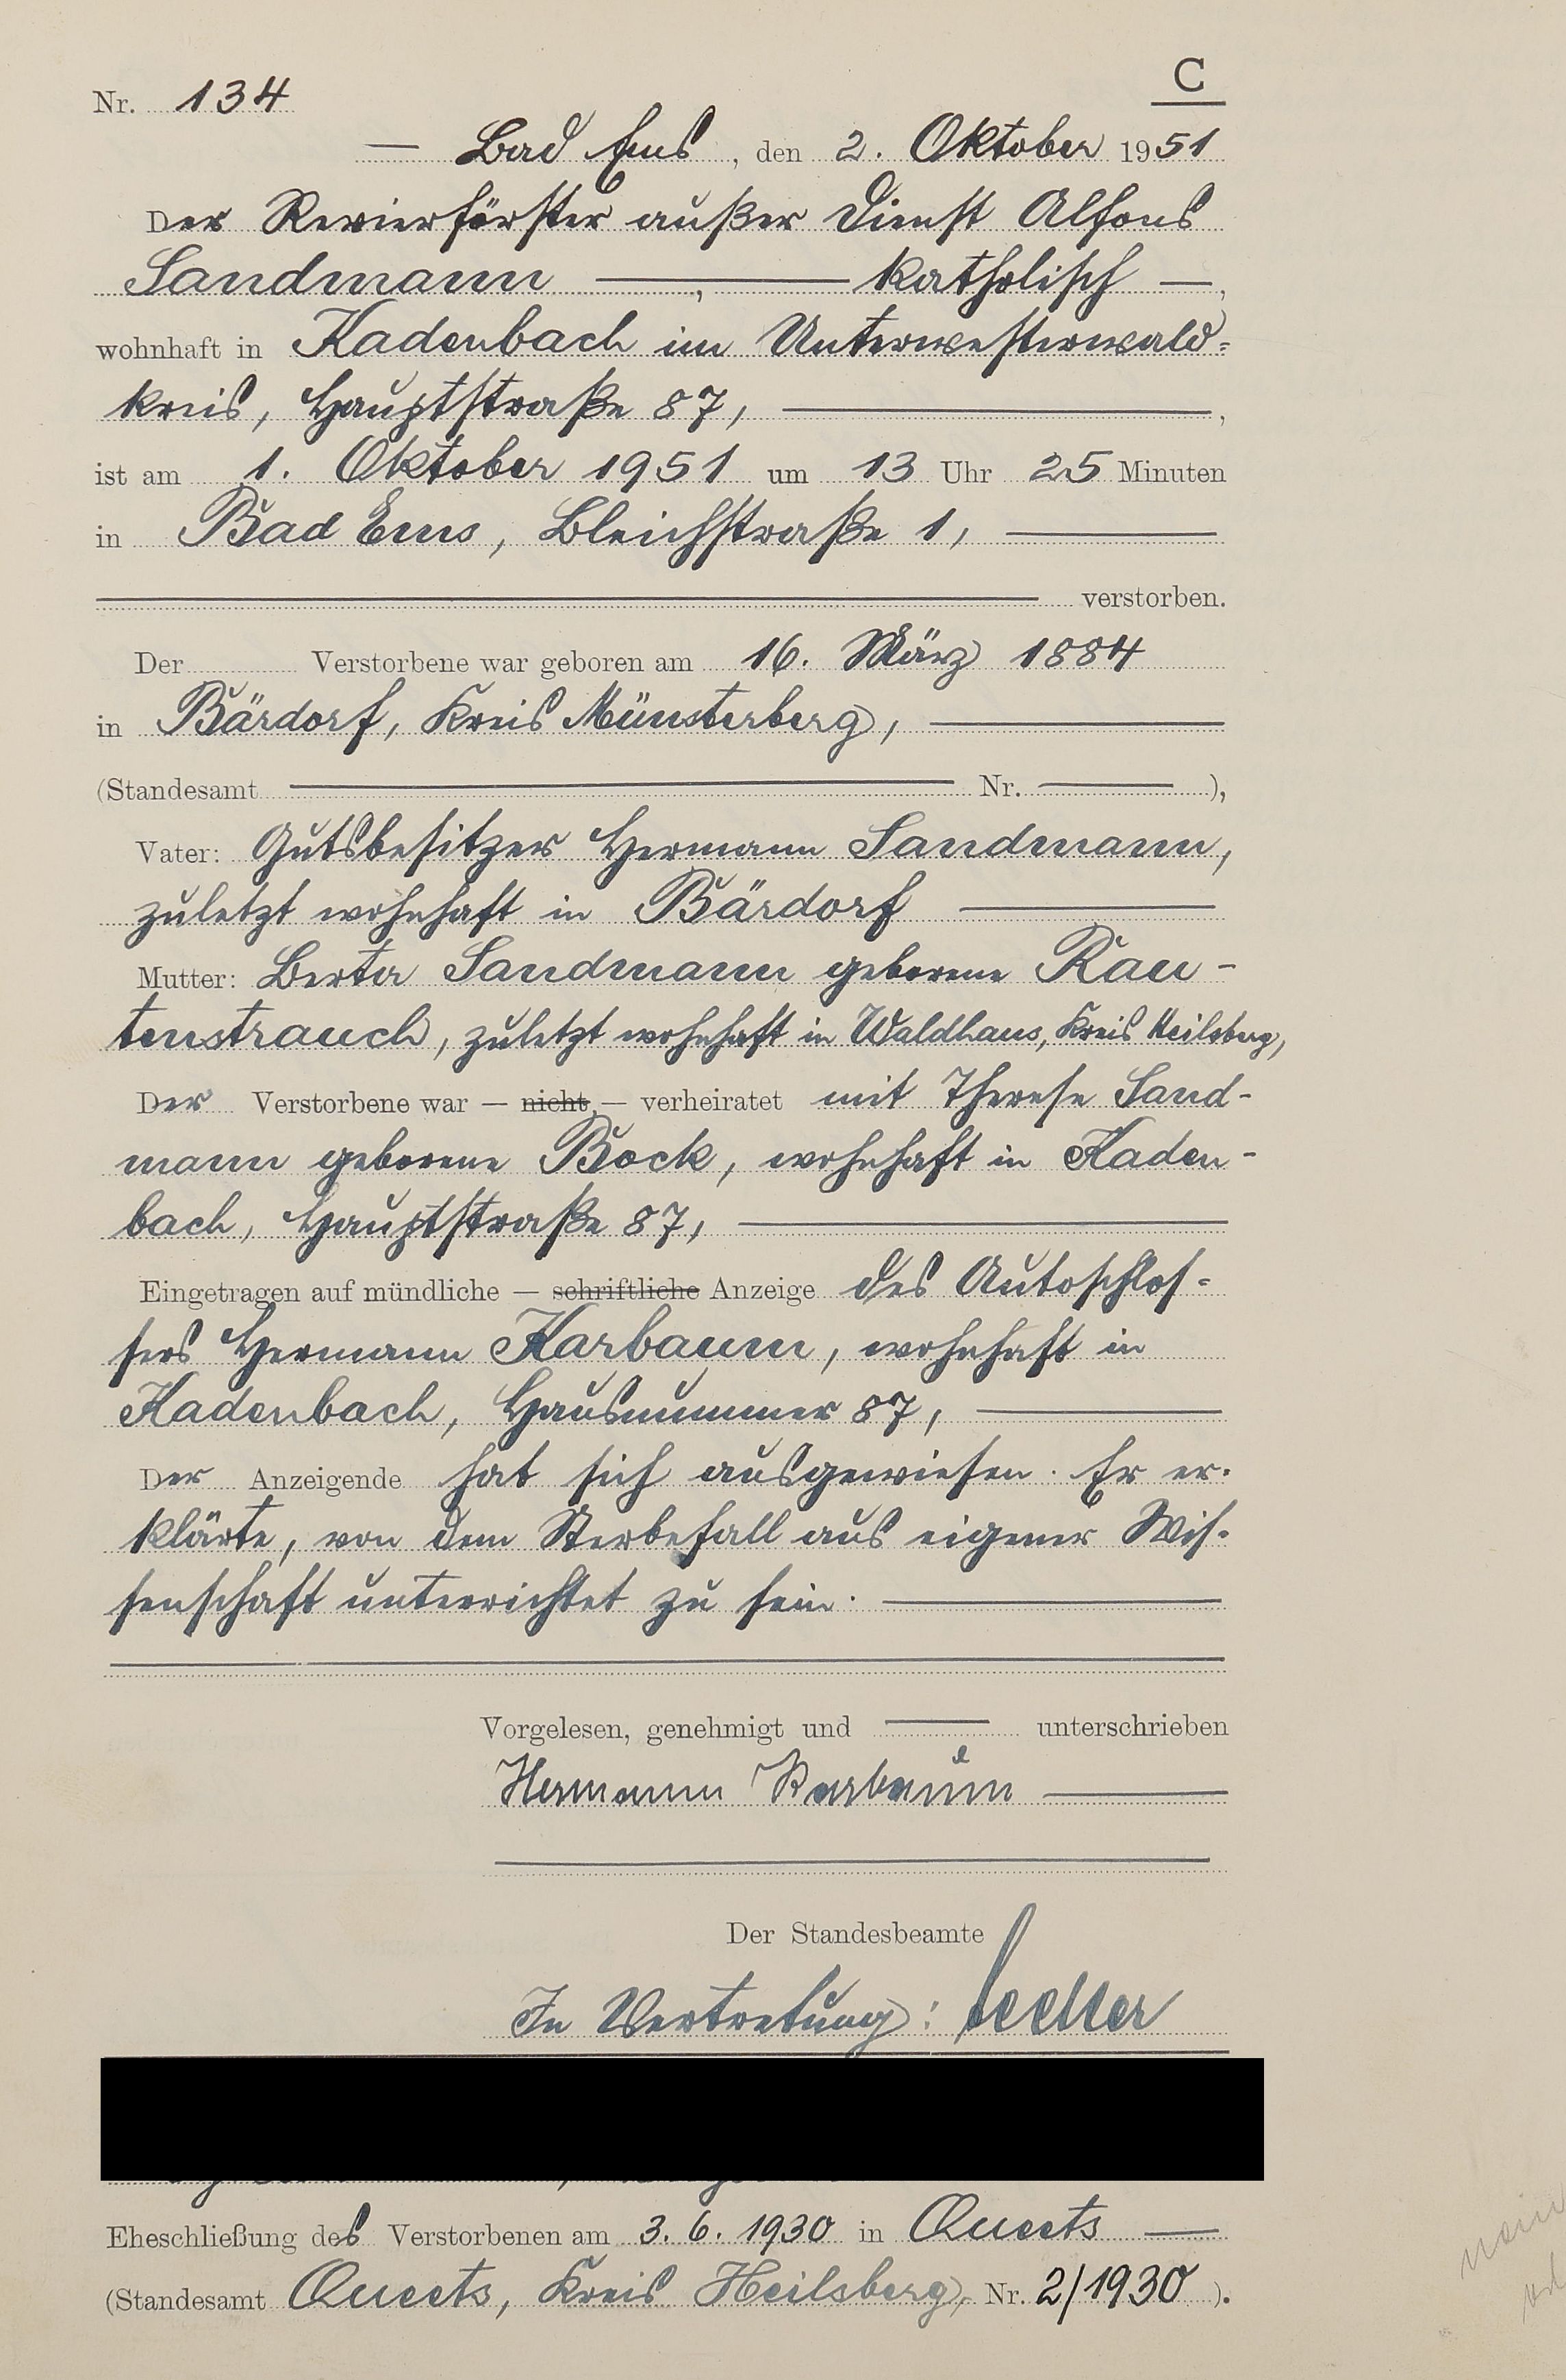 C
Nr. 134
Bad Ems, den 2. Oktober 1951
Der Revierförster außer Dienst Alfons
Sandmann ——, —— katholisch —,
wohnhaft in Kadenbach im Unterwesterwald-
kreis, Hauptstraße 87, ——,
ist am 1. Oktober 1951 um 13 Uhr 25 Minuten
in Bad Ems, Bleichstraße 1, ——
—— verstorben.
Der Verstorbene war geboren am 16. März 1884
in Bärdorf, Kreis Münsterberg, ——
(Standesamt —— Nr. ——),
Vater: Gutsbesitzer Hermann Sandmann,
zuletzt wohnhaft in Bärdorf ——
Mutter: Berta Sandmann geborene Rau-
tenstrauch, zuletzt wohnhaft in Waldhaus, Kreis Heilsberg,
Der Verstorbene war — nicht — verheiratet mit Therese Sand-
mann geborene Bock, wohnhaft in Kaden-
bach, Hauptstraße 87, ——
Eingetragen auf mündliche — schriftliche Anzeige des Autoschlos-
sers Hermann Karbaum, wohnhaft in
Kadenbach, Hausnummer 87, ——
Der Anzeigende hat sich ausgewiesen. Er er-
klärte, von dem Sterbefall aus eigener Wis-
senschaft unterrichtet zu sein. ——
Vorgelesen, genehmigt und —— unterschrieben
Hermann Karbaum ——
Der Standesbeamte
In Vertretung:
Eheschließung des Verstorbenen am 3. 6. 1930 in Queets ——
(Standesamt Queets, Kreis Heilsberg, Nr. 2/1930 ).